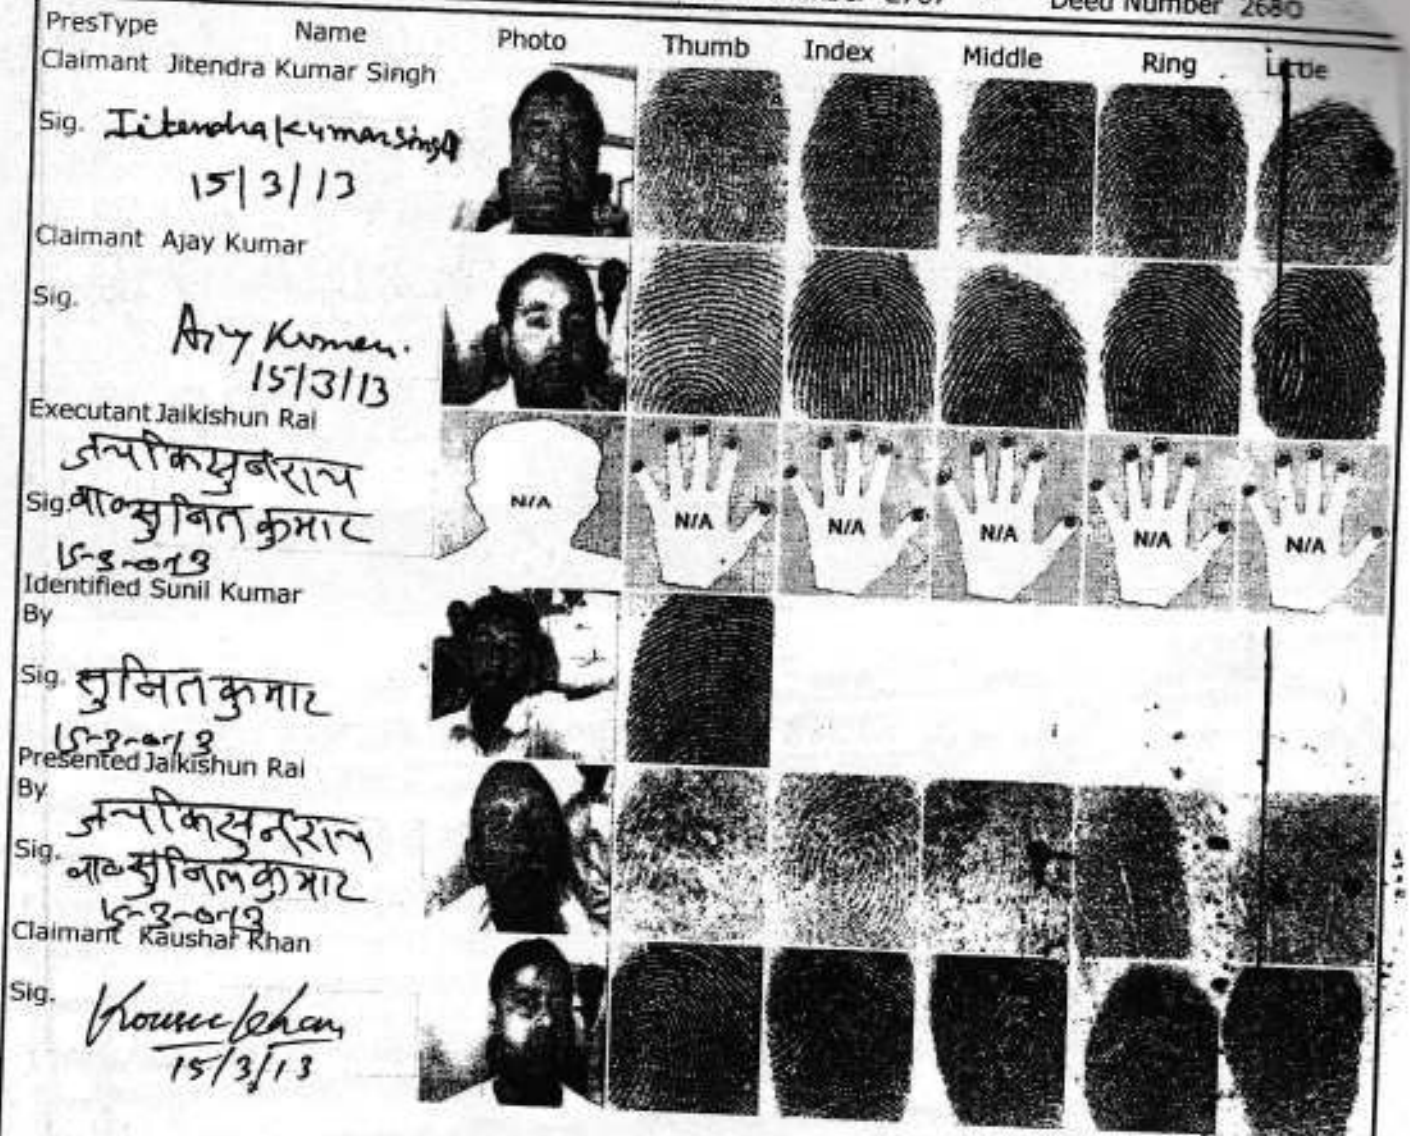 2767 Deed Number 2680
PresType Name Photo Thumb Index Middle Ring Little
Claimant Jitendra Kumar Singh
Sig. Jitendra Kumar Singh
15/3/13
Claimant Ajay Kumar
Sig.
Ajay Kumar.
15/3/13
Executant Jaikishun Rai
जयकिसुन राय
N/A N/A N/A N/A N/A N/A
Sig. वा० सुनिल कुमार
15-3-013
Identified Sunil Kumar
By
Sig. सुनिल कुमार
15-3-013
Presented Jaikishun Rai
By
जयकिसुन राय
Sig. वा० सुनिल कुमार
15-3-013
Claimant Kaushar Khan
Sig.
Khan
15/3/13